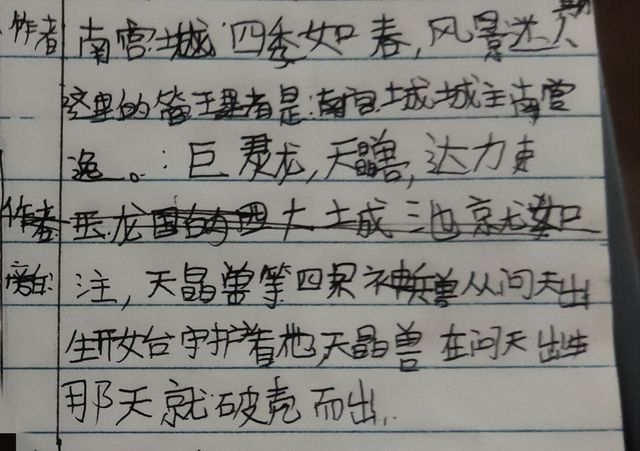 作者 南宫土城 四季如春，风景迷人
这里的管王里者是：南宫土城城主南宫
逸。：巨君龙，天晶兽，达力
作者 龙国的四大土成池京尤如
旁白：注，天晶兽等四只神兽从问天出
生开始台守护着他，天晶兽在问天出生
那天就破壳而出.